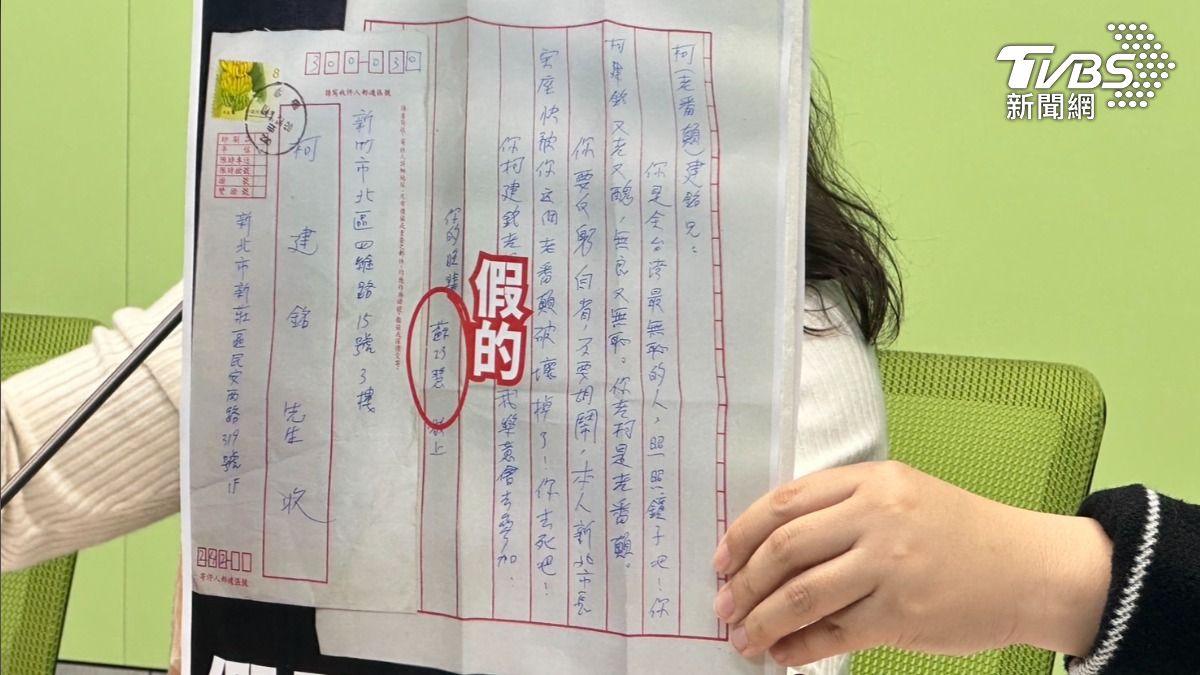 TVBS
新聞網
柯(老番顛)建銘兄:
你是全台灣最無恥的人,照照鏡子吧!你
柯建銘又老又醜,無良又無恥。你老柯是老番顛。
你要反躬自省,不要胡鬧,本人新北市長
寶座快被你這個老番顛破壞掉了!你去死吧!
你柯建銘老
我樂意會去參加.
假的
你的晚輩 蘇巧慧 敬上
300-030
請寫收件人郵遞區號
新竹市北區四維路15號3樓
柯建銘先生收
8
新北市新莊區民安西路319號1F
242
寄件人郵遞區號